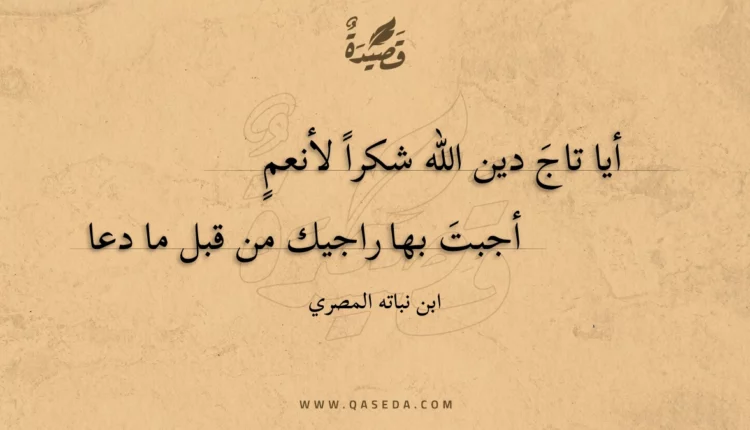 قَصِيْدَةٌ
أيا تاجَ دين الله شكراً لأنعمٍ
أجبتَ بها راجيك من قبل ما دعا
ابن نباته المصري
WWW.QASEDA.COM